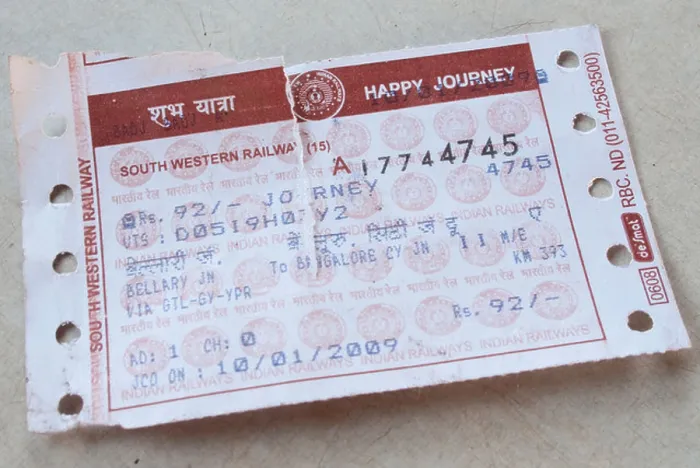 शुभ यात्रा HAPPY JOURNEY
SOUTH WESTERN RAILWAY (15) A 17744745
4745
Rs. 92/- JOURNEY
UTS:
बेंगलूरु सिटी जं
BELLARY JN To BANGALORE CY JN II M/E
VIA GTL-GY-YPR KM 393
Rs. 92/-
AD: 1 CH: 0
JCO ON : 10/01/2009
SOUTH WESTERN RAILWAY
भारतीय रेल
INDIAN RAILWAYS
RBC. ND (011-42563500)
deSmat
0608